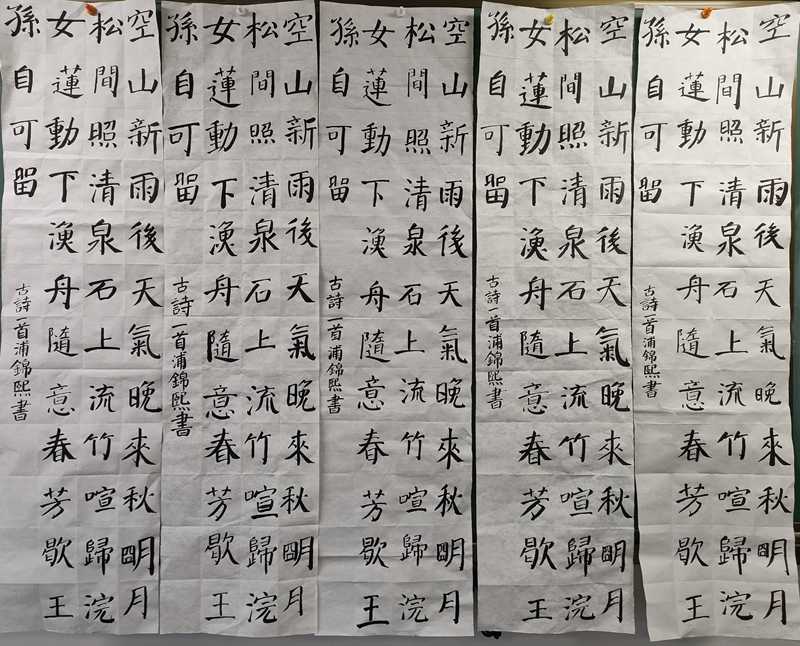 空山新雨後天氣晚來秋明月
松間照清泉石上流竹喧歸浣
女蓮動下漁舟隨意春芳歇王
孫自可留
古詩一首浦錦熙書
空山新雨後天氣晚來秋明月
松間照清泉石上流竹喧歸浣
女蓮動下漁舟隨意春芳歇王
孫自可留
古詩一首浦錦熙書
空山新雨後天氣晚來秋明月
松間照清泉石上流竹喧歸浣
女蓮動下漁舟隨意春芳歇王
孫自可留
古詩一首浦錦熙書
空山新雨後天氣晚來秋明月
松間照清泉石上流竹喧歸浣
女蓮動下漁舟隨意春芳歇王
孫自可留
古詩一首浦錦熙書
空山新雨後天氣晚來秋明月
松間照清泉石上流竹喧歸浣
女蓮動下漁舟隨意春芳歇王
孫自可留
古詩一首浦錦熙書